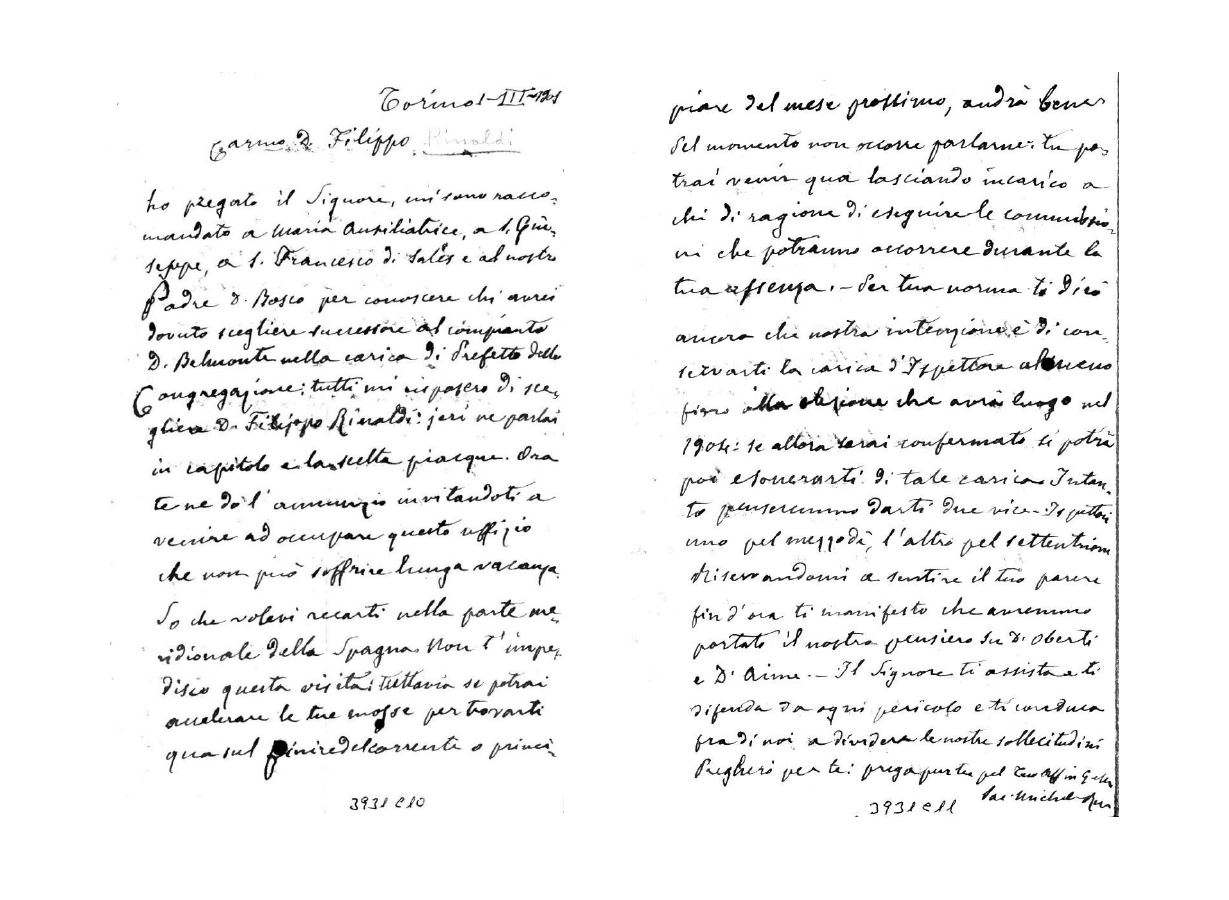 Torino 1-III-1901
Carmo D. Filippo Rinaldi
ho pregato il Signore, mi sono racco-
mandato a Maria Ausiliatrice, a S. Giu-
seppe, a S. Francesco di Sales e al nostro
Padre D. Bosco per conoscere chi avrei
dovuto scegliere successore al compianto
D. Belmonte nella carica di Prefetto della
Congregazione: tutti mi risposero di sce-
gliere D. Filippo Rinaldi: jeri ne parlai
in capitolo e la scelta piacque. Ora
te ne do l'annunzio invitandoti a
venire ad occupare questo uffizio
che non può soffrire lunga vacanza.
So che volevi recarti nella parte me-
ridionale della Spagna. Non t'impe-
disco questa visita: tuttavia se potrai
accelerare le tue mosse per trovarti
qua sul finire del corrente o princi-
3931 C10
piare del mese prossimo, andrà bene.
Pel momento non occorre parlarne: tu po-
trai venir qua lasciando incarico a
chi di ragione di eseguire le commissio-
ni che potranno occorrere durante la
tua assenza. - Per tua norma ti dirò
ancora che nostra intenzione è di con-
servarti la carica d'Ispettore almeno
fino alla elezione che avrà luogo nel
1904: se allora sarai confermato si potrà
poi esonerarti di tale carica. Intan-
to penseremmo darti due vice-Ispettori
uno pel mezzodì, l'altro pel settentrione
Riservandomi a sentire il tuo parere
fin d'ora ti manifesto che avremmo
portato il nostro pensiero su D. Oberti
e D. Aime. - Il Signore ti assista e ti
difenda da ogni pericolo e ti conduca
fra di noi a dividere le nostre sollecitudini
Pregherò per te: prega pur tu pel tuo aff in G.
Sac. Michele Rua
3931 C11